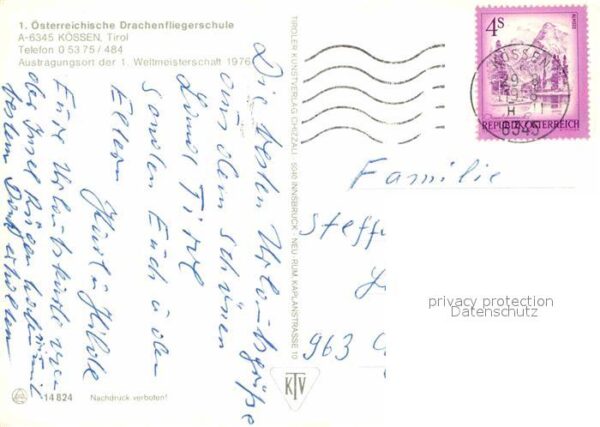 1. Österreichische Drachenfliegerschule
A-6345 KÖSSEN, Tirol
Telefon 0 53 75 / 484
Austragungsort der 1. Weltmeisterschaft 1976
Die besten Urlaubsgrüße
aus dem schönen
Lande Tirol
senden Euch u. den
Eltern
Eure Urlaubskarte von
der Insel Rügen haben wir mit
bestem Dank erhalten
14 824
Nachdruck verboten!
TIROLER KUNSTVERLAG CHIZZALI, 6040 INNSBRUCK - NEU-RUM KAPLANSTRASSE 10
KTV
4S
REPUBLIK ÖSTERREICH
KÖSSEN
6345
Familie
Steff
963
privacy protection
Datenschutz